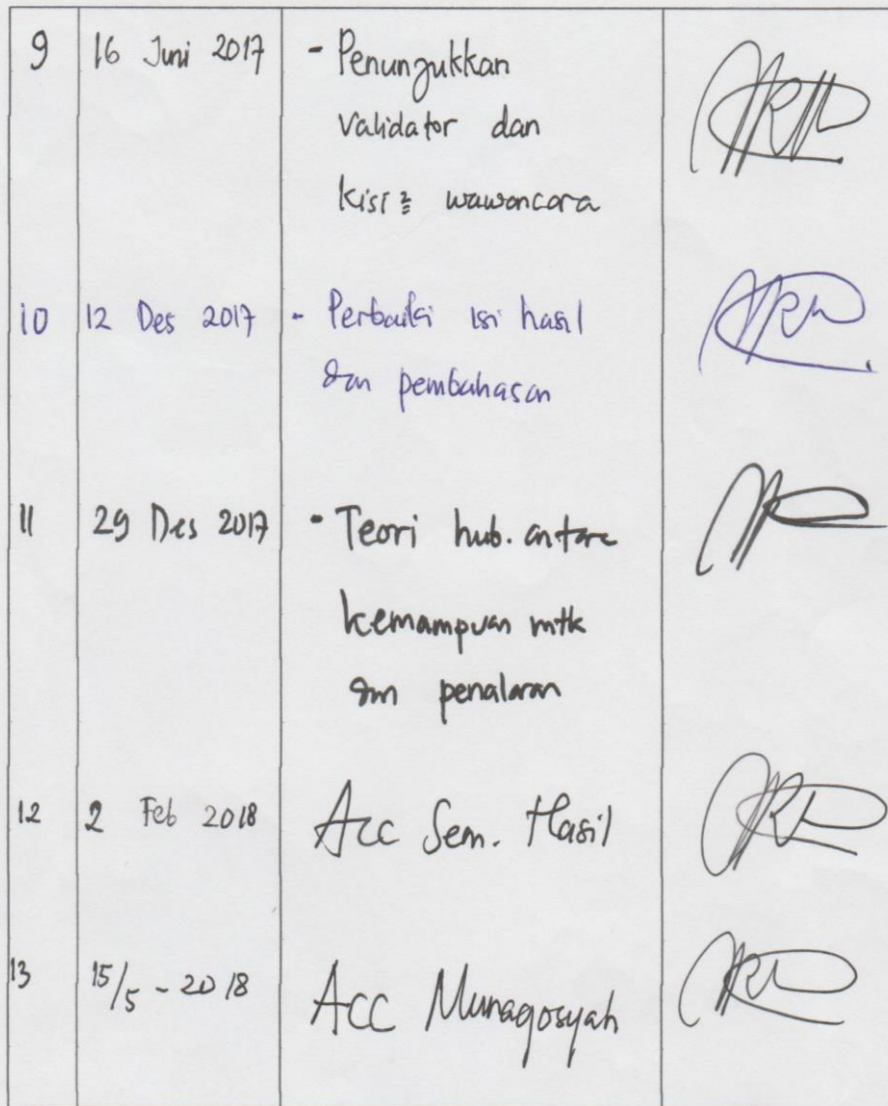 9 16 Juni 2017 - Penunjukkan
validator dan
kisi² wawancara
10 12 Des 2017 - Perbaiki isi hasil
dan pembahasan
11 29 Des 2017 - Teori hub. antara
kemampuan mtk
dan penalaran
12 2 Feb 2018 Acc Sem. Hasil
13 15/5 - 2018 Acc Munaqosyah